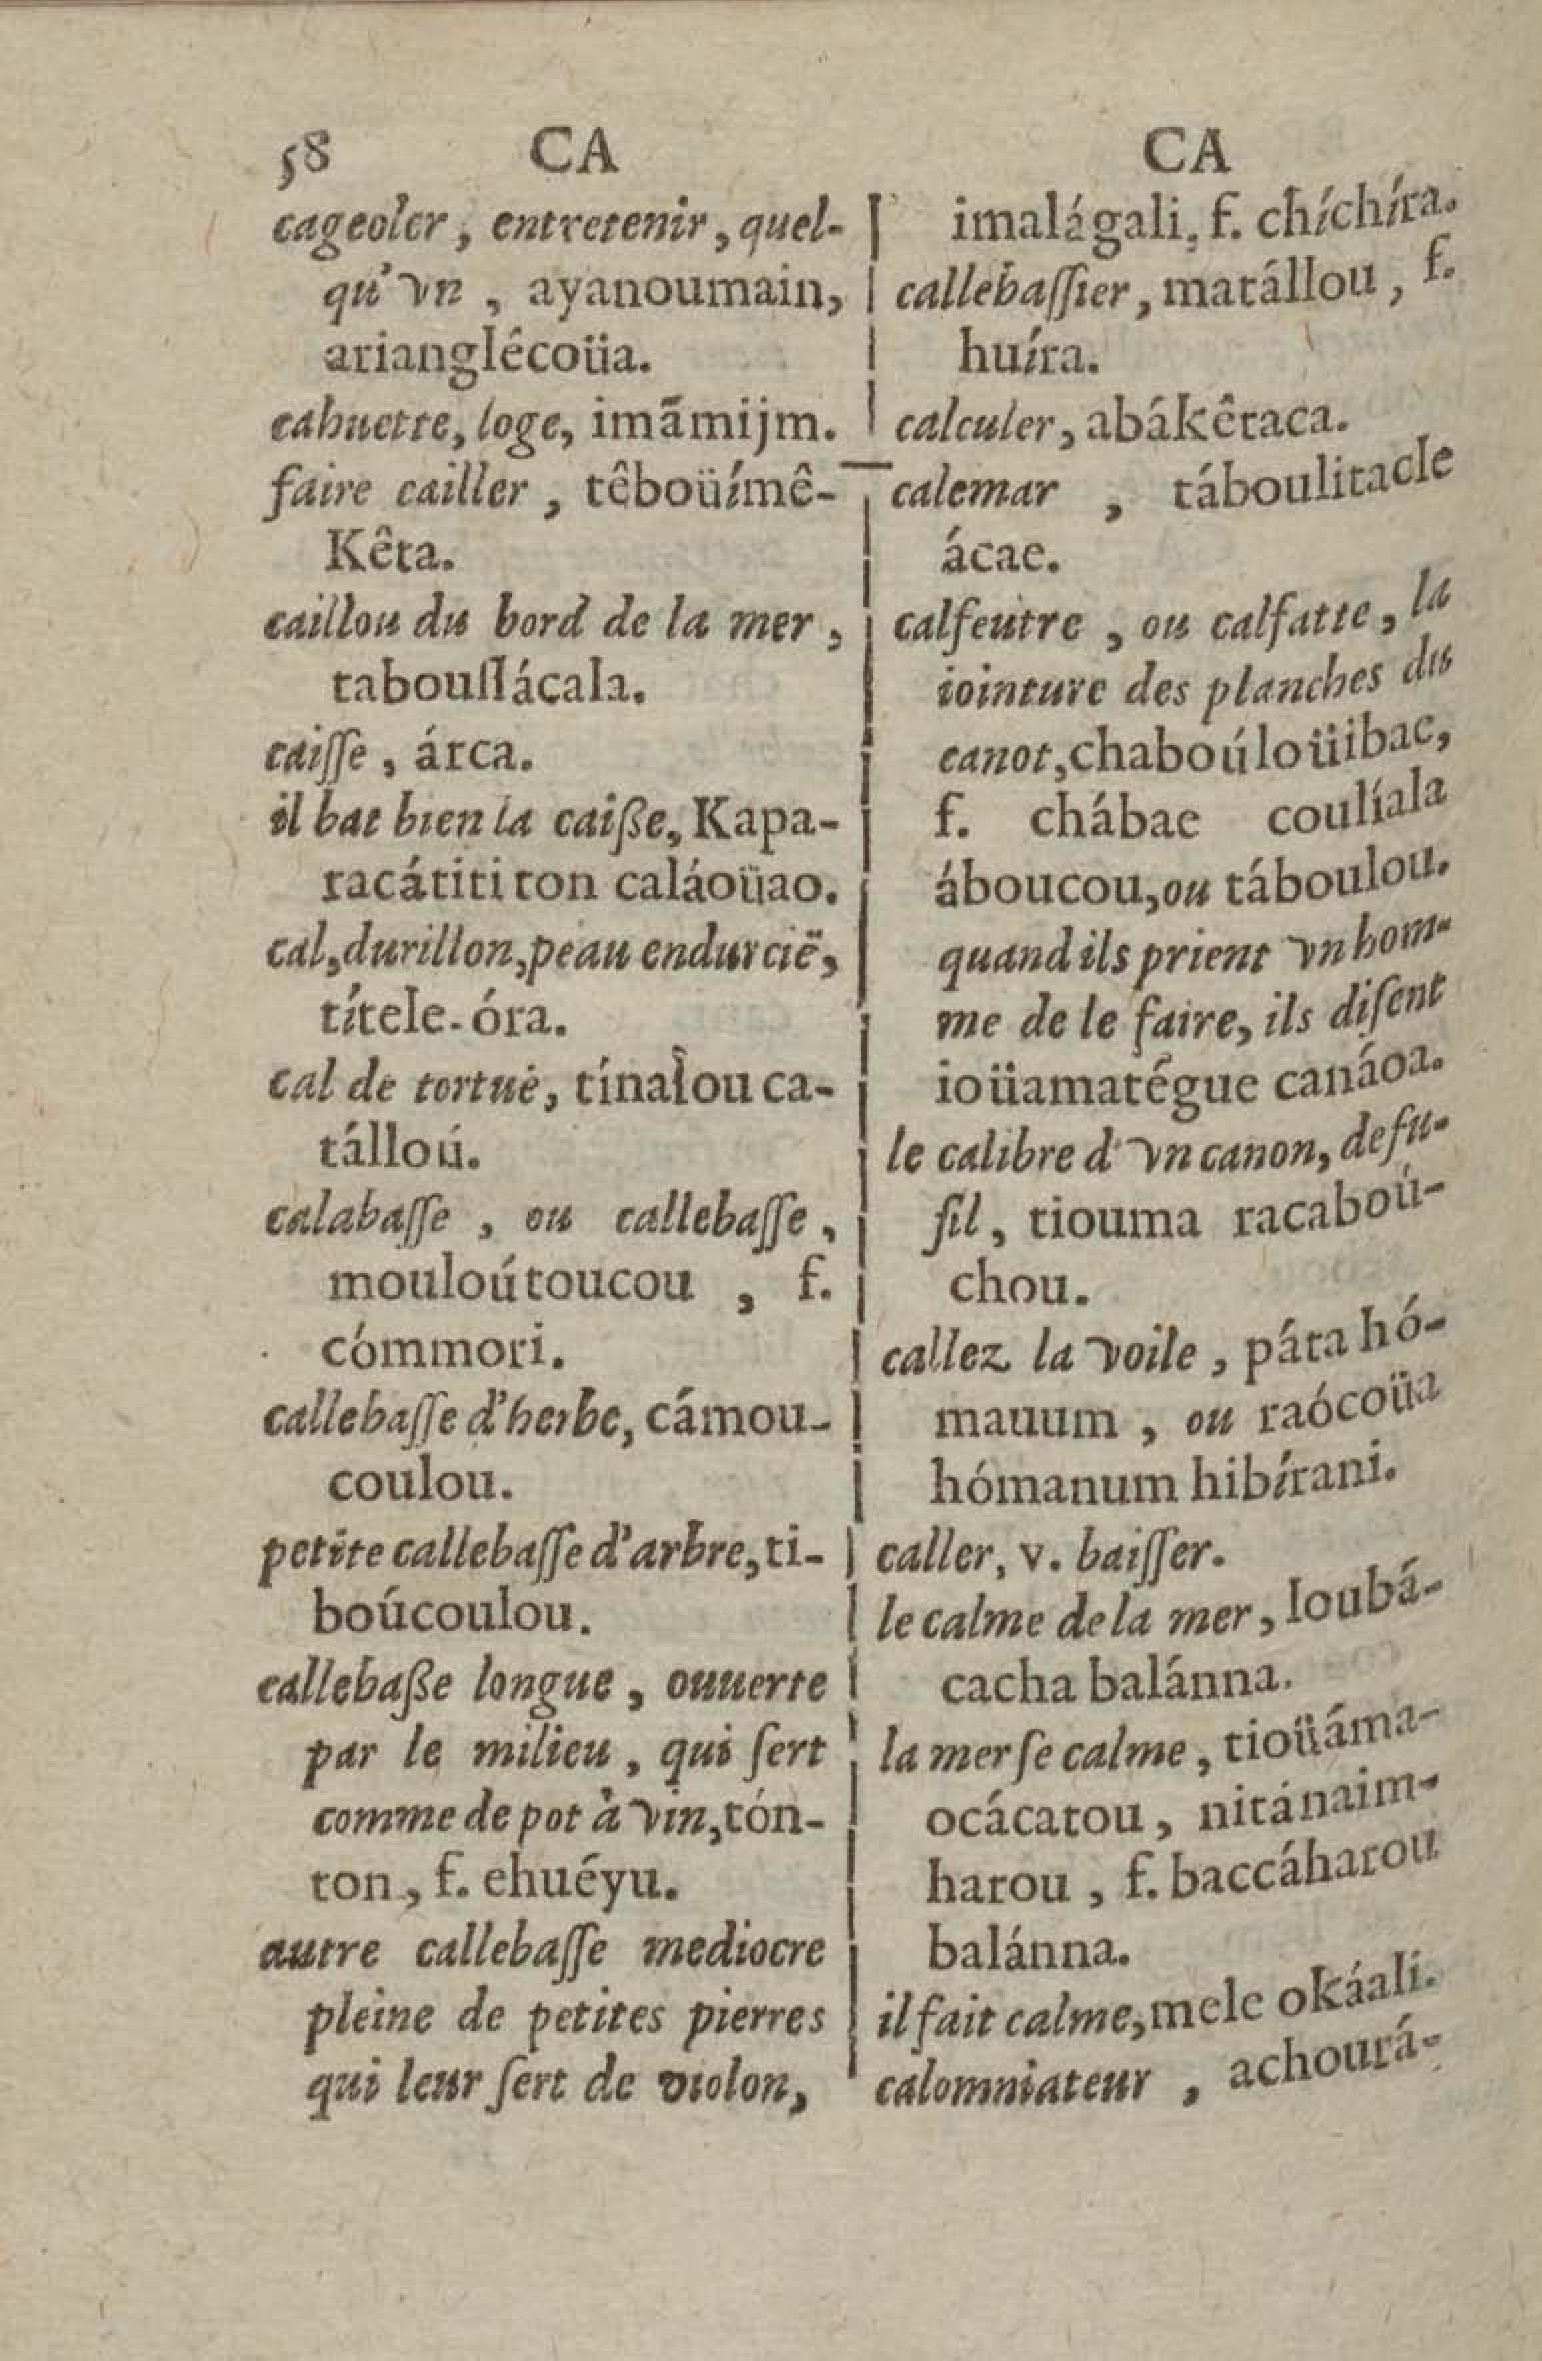 58 CA CA
cageoler, entretenir, quel-
qu'vn, ayanoumain,
arianglécoüa.
cahuette, loge, imãmijm.
faire cailler, têboüímê-
Kêta.
caillou du bord de la mer,
taboullácala.
caiſſe, árca.
il bat bien la caiße, Kapa-
racátiti ton caláoüao.
cal, durillon, peau endurcië,
títele-óra.
cal de tortuë, tínalou ca-
tálloú.
calabaſſe, ou callebaſſe,
mouloútoucou, f.
cómmori.
callebaſſe d'herbe, cámou-
coulou.
petite callebaſſe d'arbre, ti-
boúcoulou.
callebaße longue, ouuerte
par le milieu, qui ſert
comme de pot à vin, tón-
ton, f. ehuéyu.
autre callebaſſe mediocre
pleine de petites pierres
qui leur ſert de violon,
imalágali, f. chíchíra.
callebaſſier, matállou, f.
huíra.
calculer, abákêtaca.
calemar, táboulitacle
ácae.
calfeutre, ou calfatte, la
iointure des planches du
canot, chaboúloüibae,
f. chábae coulíala
áboucou, ou táboulou.
quand ils prient vn hom-
me de le faire, ils diſent
ioüamatégue canáoa.
le calibre d'vn canon, de fu-
ſil, tiouma racaboú-
chou.
callez la voile, páta hó-
mauum, ou raócoüa
hómanum hibírani.
caller, v. baiſſer.
le calme de la mer, Ioubá-
cacha balánna.
la mer ſe calme, tioüáma-
ocácatou, nitánaim-
harou, f. baccáharou
balánna.
il fait calme, mele okáali.
calomniateur, achourá-